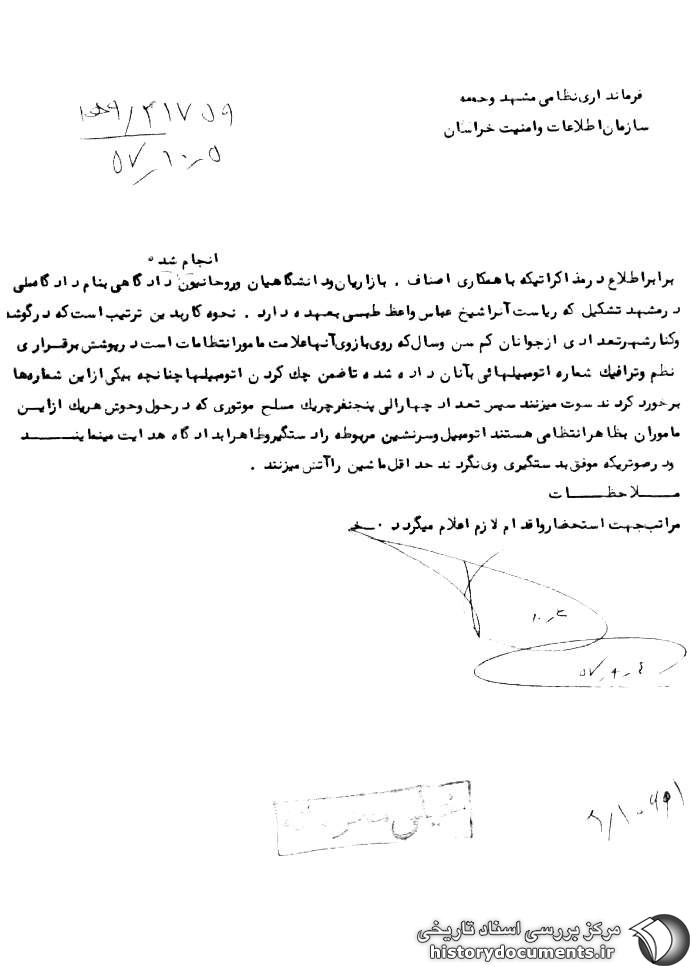 فرمانداری نظامی مشهد و حومه
سازمان اطلاعات و امنیت خراسان
۵۷-۱۰-۵
انجام شده
برابر اطلاع در مذاکراتیکه با همکاری اصناف . بازاریان و دانشگاهیان و روحانیون دادگاهی بنام دادگاه ملی
در مشهد تشکیل که ریاست آنرا شیخ عباس واعظ طبسی بعهده دارد . نحوه کار بدین ترتیب است که در گوشه
و کنار شهر تعدادی از جوانان کم سن و سال که روی بازوی آنها علامت مامور انتظامات است در پوشش برقراری
نظم و ترافیک شماره اتومبیلهائی بآنان داده شده تا ضمن چک کردن اتومبیلها چنانچه بیکی از این شماره‌ها
برخورد کردند سوت میزنند سپس تعداد چهار الی پنجنفر چریک مسلح موتوری که در حول و حوش هریک از این
ماموران بظاهر انتظامی هستند اتومبیل و سرنشین مربوطه را دستگیر و ظاهرا بدادگاه هدایت مینمایند
و در صورتیکه موفق بدستگیری وی نگردند حداقل ماشین را آتش میزنند .
ملاحظات
مراتب جهت استحضار و اقدام لازم اعلام میگردد
خیلی محرمانه
مرکز بررسی اسناد تاریخی
historydocuments.ir